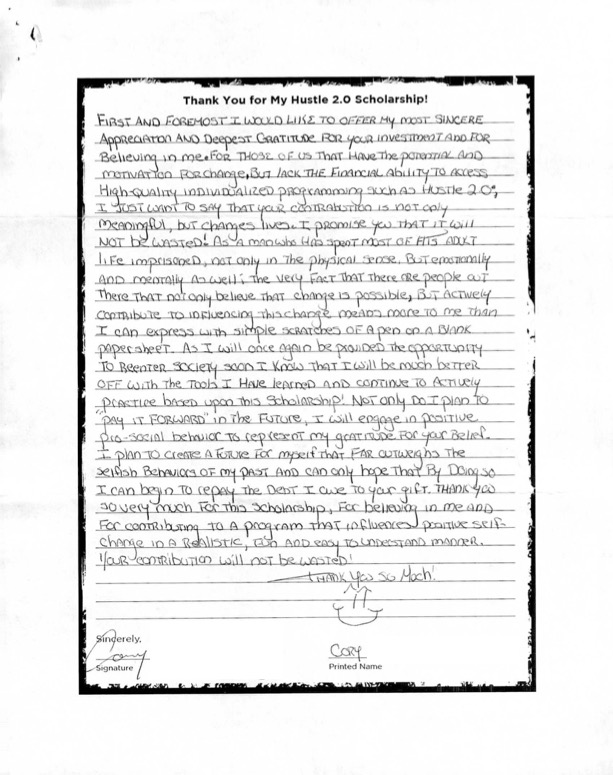 Thank You for My Hustle 2.0 Scholarship!
FIRST AND FOREMOST I WOULD LIKE TO OFFER MY MOST SINCERE
APPRECIATION AND DEEPEST GRATITUDE FOR YOUR INVESTMENT AND FOR
BELIEVING IN ME. FOR THOSE OF US THAT HAVE THE POTENTIAL AND
MOTIVATION FOR CHANGE, BUT LACK THE FINANCIAL ABILITY TO ACCESS
HIGH-QUALITY INDIVIDUALIZED PROGRAMMING SUCH AS HUSTLE 2.0,
I JUST WANT TO SAY THAT YOUR CONTRIBUTION IS NOT ONLY
MEANINGFUL, BUT CHANGES LIVES. I PROMISE YOU THAT IT WILL
NOT BE WASTED! AS A MAN WHO HAS SPENT MOST OF HIS ADULT
LIFE IMPRISONED, NOT ONLY IN THE PHYSICAL SENSE, BUT EMOTIONALLY
AND MENTALLY AS WELL; THE VERY FACT THAT THERE ARE PEOPLE OUT
THERE THAT NOT ONLY BELIEVE THAT CHANGE IS POSSIBLE, BUT ACTIVELY
CONTRIBUTE TO INFLUENCING THIS CHANGE MEANS MORE TO ME THAN
I CAN EXPRESS WITH SIMPLE SCRATCHES OF A PEN ON A BLANK
PAPER SHEET. AS I WILL ONCE AGAIN BE PROVIDED THE OPPORTUNITY
TO REENTER SOCIETY SOON I KNOW THAT I WILL BE MUCH BETTER
OFF WITH THE TOOLS I HAVE LEARNED AND CONTINUE TO ACTIVELY
PRACTICE BASED UPON THIS SCHOLARSHIP! NOT ONLY DO I PLAN TO
"PAY IT FORWARD" IN THE FUTURE, I WILL ENGAGE IN POSITIVE
PRO-SOCIAL BEHAVIOR TO REPRESENT MY GRATITUDE FOR YOUR BELIEF.
I PLAN TO CREATE A FUTURE FOR MYSELF THAT FAR OUTWEIGHS THE
SELFISH BEHAVIORS OF MY PAST AND CAN ONLY HOPE THAT BY DOING SO
I CAN BEGIN TO REPAY THE DEBT I OWE TO YOUR GIFT. THANK YOU
SO VERY MUCH FOR THIS SCHOLARSHIP, FOR BELIEVING IN ME AND
FOR CONTRIBUTING TO A PROGRAM THAT INFLUENCES POSITIVE SELF-
CHANGE IN A REALISTIC, FUN AND EASY TO UNDERSTAND MANNER.
YOUR CONTRIBUTION WILL NOT BE WASTED!
THANK YOU SO MUCH!
Sincerely,
Cory
Signature
CORY
Printed Name